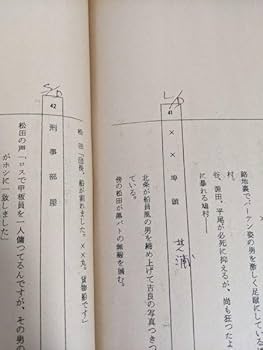 路地裏でバーテン姿の男を激しく足蹴にしている
村。
谷、源田、平尾が必死に抑えるが、尚も狂ったよ
に暴れる鳩村――
41
××埠頭
芝浦
北条が船員風の男を締め上げて古良の写真つきつ
ている。
傍の松田が黒バトの無線を掴む。
松田「団長、船が割れました。××丸、貨物船です」
S/D
42
刑事部屋
松田の声「ロスで甲板員を一人傭ってるんですが、その男の
がホシに一致しました」